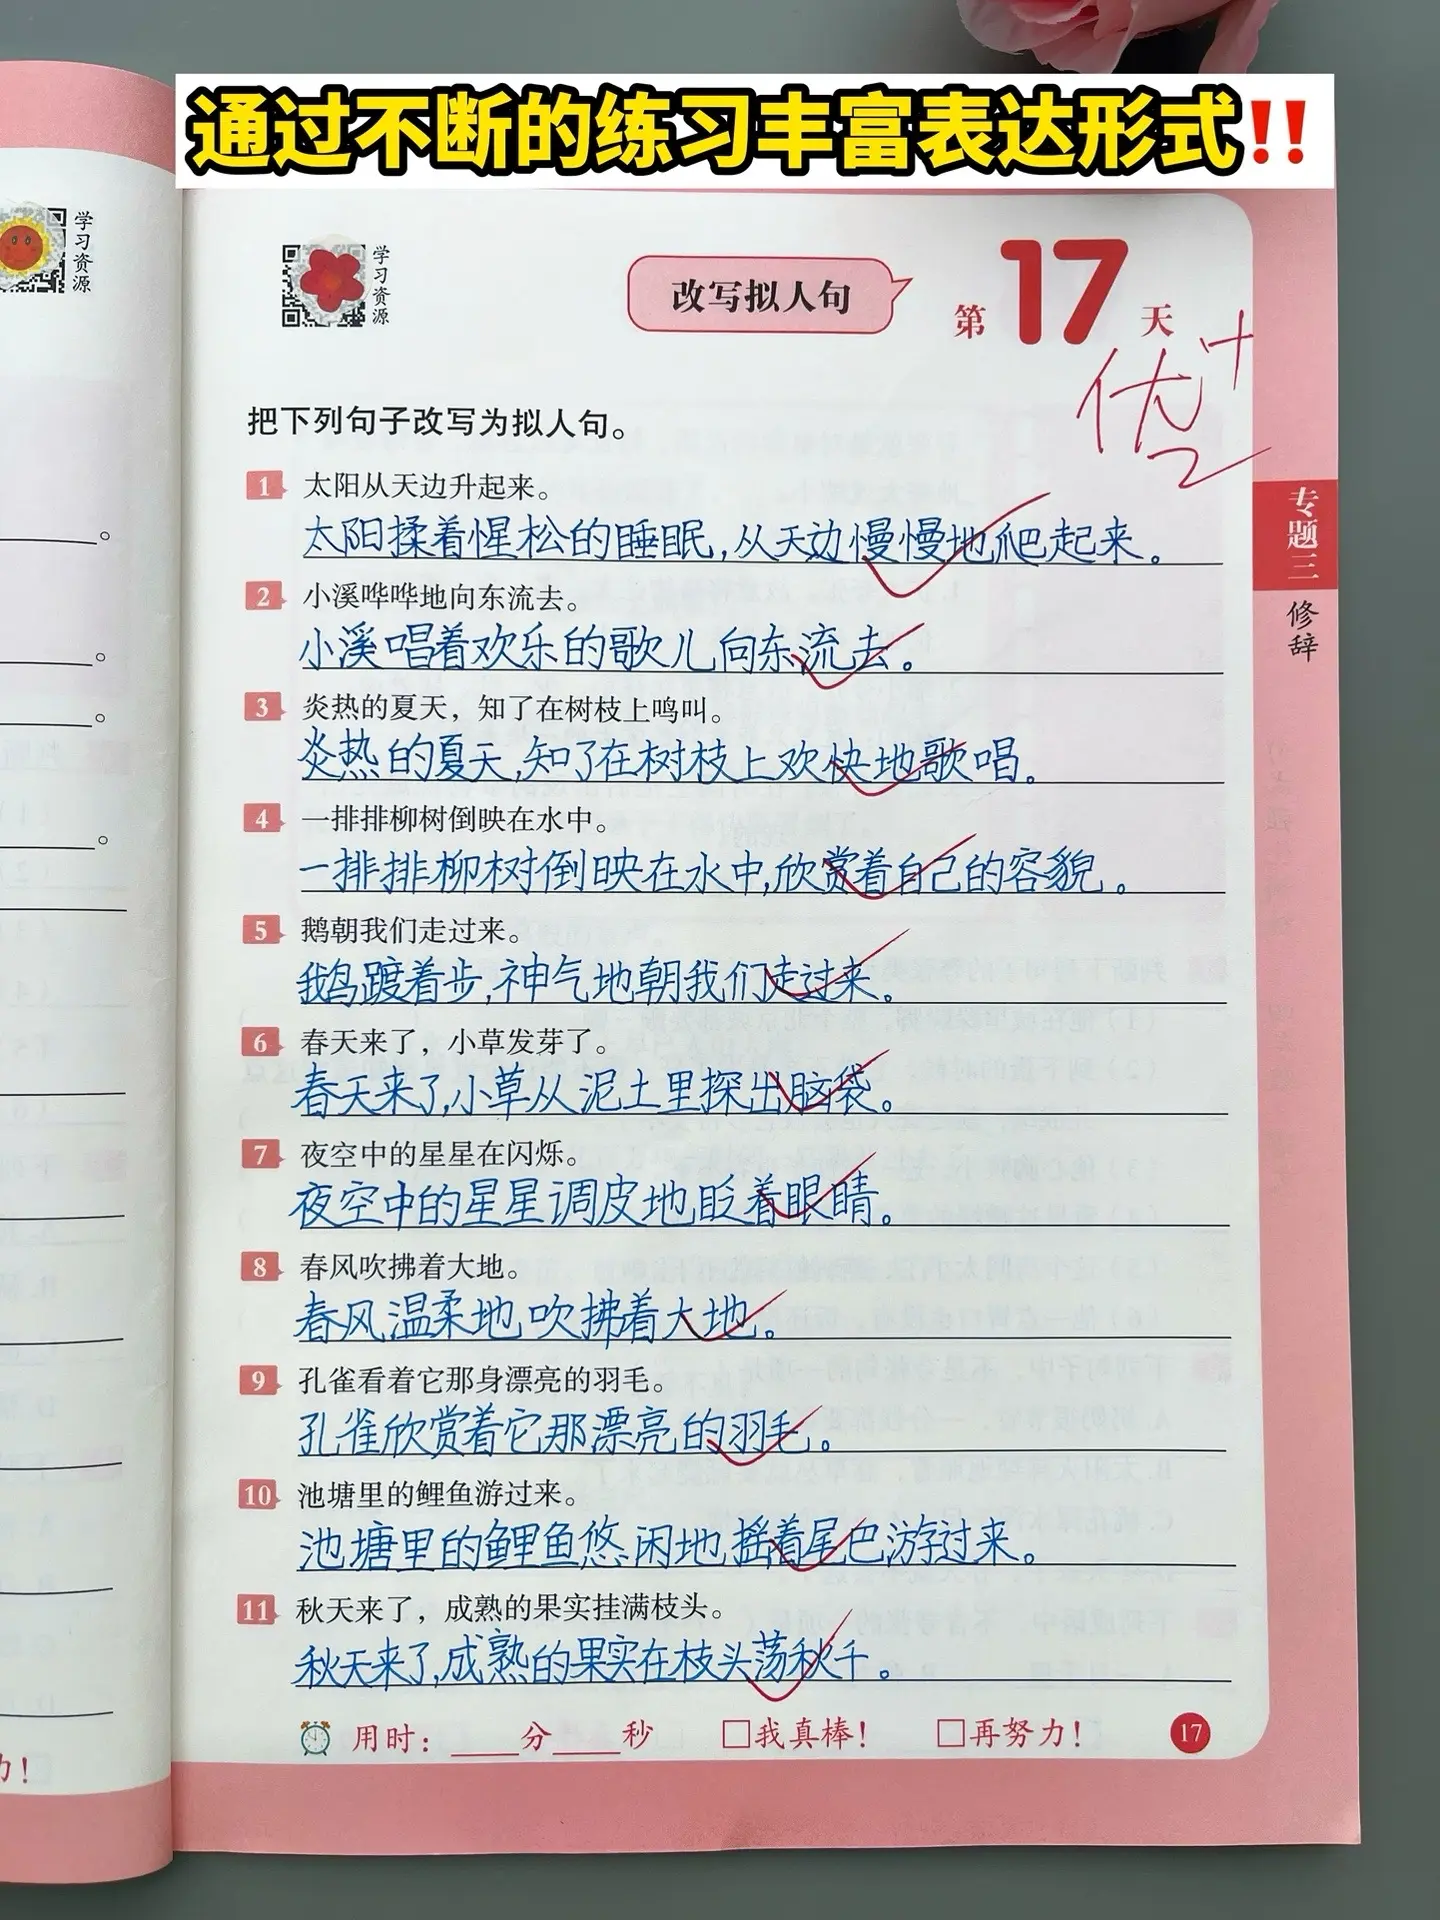 通过不断的练习丰富表达形式!!
学习资源
学习资源
改写拟人句
第17天
优+
把下列句子改写为拟人句。
1 太阳从天边升起来。
太阳揉着惺松的睡眠,从天边慢慢地爬起来。
2 小溪哗哗地向东流去。
小溪唱着欢乐的歌儿向东流去。
3 炎热的夏天，知了在树枝上鸣叫。
炎热的夏天,知了在树枝上欢快地歌唱。
4 一排排柳树倒映在水中。
一排排柳树倒映在水中,欣赏着自己的容貌。
5 鹅朝我们走过来。
鹅踱着步,神气地朝我们走过来。
6 春天来了，小草发芽了。
春天来了,小草从泥土里探出脑袋。
7 夜空中的星星在闪烁。
夜空中的星星调皮地眨着眼睛。
8 春风吹拂着大地。
春风温柔地吹拂着大地。
9 孔雀看着它那身漂亮的羽毛。
孔雀欣赏着它那漂亮的羽毛。
10 池塘里的鲤鱼游过来。
池塘里的鲤鱼悠闲地摇着尾巴游过来。
11 秋天来了，成熟的果实挂满枝头。
秋天来了,成熟的果实在枝头荡秋千。
用时：____分____秒 □我真棒！ □再努力！
17
专题三
修辞
力！